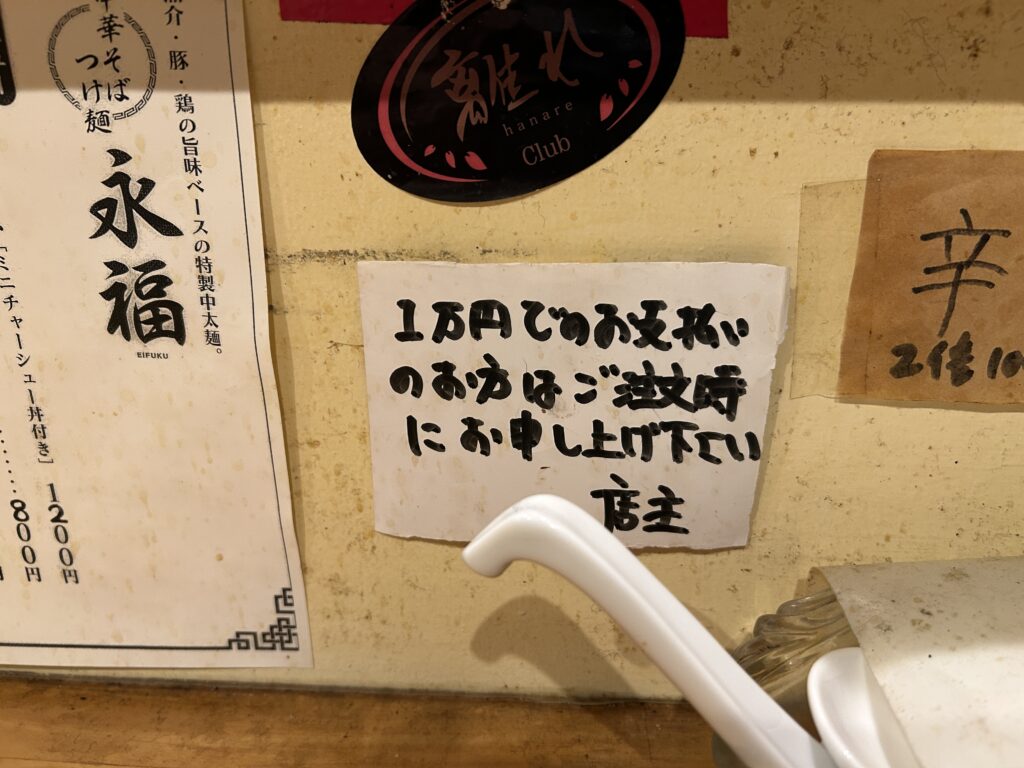 介・豚・鶏の旨味ベースの特製中太麺。
華そば
つけ麺
永福
EIFUKU
「ミニチャーシュー丼付き」1200円
800円
離れ
hanare
Club
1万円でのお支払い
のお方はご注文時
にお申し上げ下さい
店主
辛